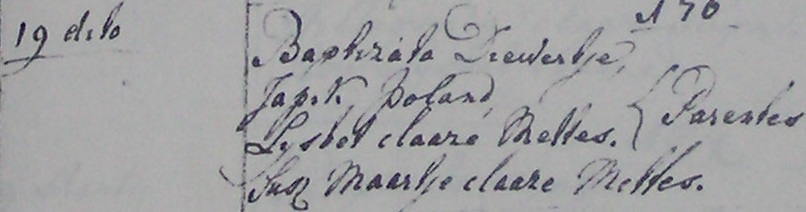 19 dito
Baptizata Diewertje,
Japik Poland,
Lysbet claare Mettes. } Parentes
Sus Maartje claare Mettes.